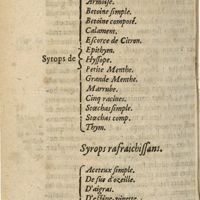 Armoise.
Betoine simple.
Betoine composé.
Calament.
Escorce de Citron.
Epithym.
Syrops de
Hyssope.
Petite Menthe.
Grande Menthe.
Marrube.
Cinq racines.
Stœchas simple.
Stœchas comp.
Thym.
Syrops rafraichissans.
Aceteux simple.
De suc d'ozeille.
D'aigras.
D'espine-vinette.